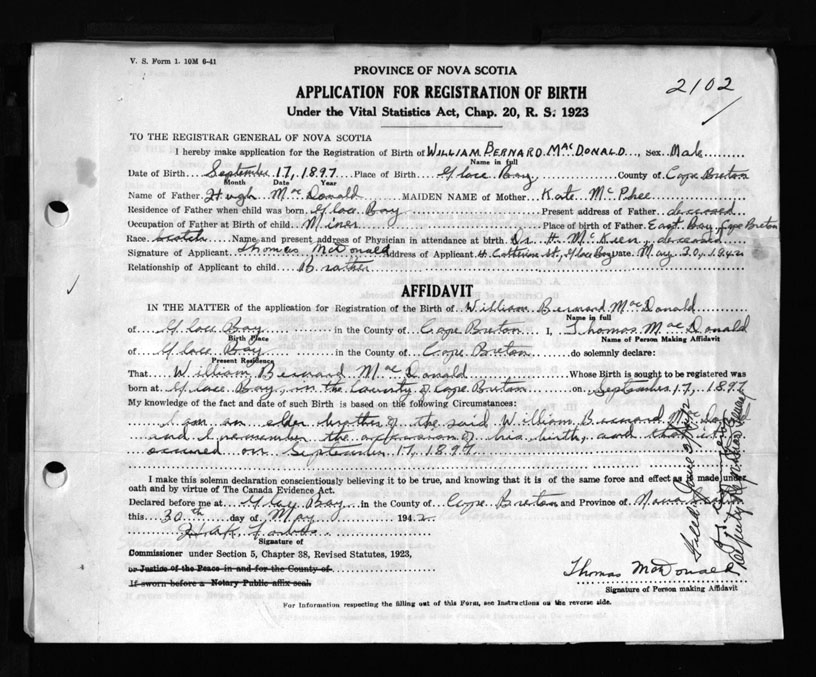 V. S. Form 1. 10M 6-41
PROVINCE OF NOVA SCOTIA
2102
APPLICATION FOR REGISTRATION OF BIRTH
Under the Vital Statistics Act, Chap. 20, R. S. 1923
TO THE REGISTRAR GENERAL OF NOVA SCOTIA
I hereby make application for the Registration of Birth of WILLIAM BERNARD MACDONALD, Sex Male
Name in full
Date of Birth September 17, 1897 Place of Birth Glace Bay County of Cape Breton
Month Date Year
Name of Father Hugh MacDonald MAIDEN NAME of Mother Kate McPhee
Residence of Father when child was born Glace Bay Present address of Father deceased
Occupation of Father at Birth of child Miner Place of birth of Father East Bay, Cape Breton
Race Scotch Name and present address of Physician in attendance at birth Dr. H. McKeen, deceased
Signature of Applicant Thomas McDonald Address of Applicant 4 Catherine St., Glace Bay Date May 30, 1942
Relationship of Applicant to child Brother
AFFIDAVIT
IN THE MATTER of the application for Registration of the Birth of William Bernard MacDonald
Name in full
of Glace Bay in the County of Cape Breton I, Thomas MacDonald
Birth Place Name of Person Making Affidavit
of Glace Bay in the County of Cape Breton do solemnly declare:
Present Residence
That William Bernard MacDonald Whose Birth is sought to be registered was
born at Glace Bay, in the County of Cape Breton on September 17, 1897
My knowledge of the fact and date of such Birth is based on the following Circumstances:
I am an elder brother of the said William Bernard MacDonald
and I remember the occasion of his birth, and that it
occured on September 17, 1897
I make this solemn declaration conscientiously believing it to be true, and knowing that it is of the same force and effect as if made under
oath and by virtue of The Canada Evidence Act.
Declared before me at Glace Bay in the County of Cape Breton and Province of Nova Scotia
this 30th day of May 1942
Signature of
Commissioner under Section 5, Chapter 38, Revised Statutes, 1923,
or Justice of the Peace in and for the County of
If sworn before a Notary Public affix seal.
Thomas McDonald
Signature of Person making Affidavit
For Information respecting the filling out of this Form, see Instructions on the reverse side.